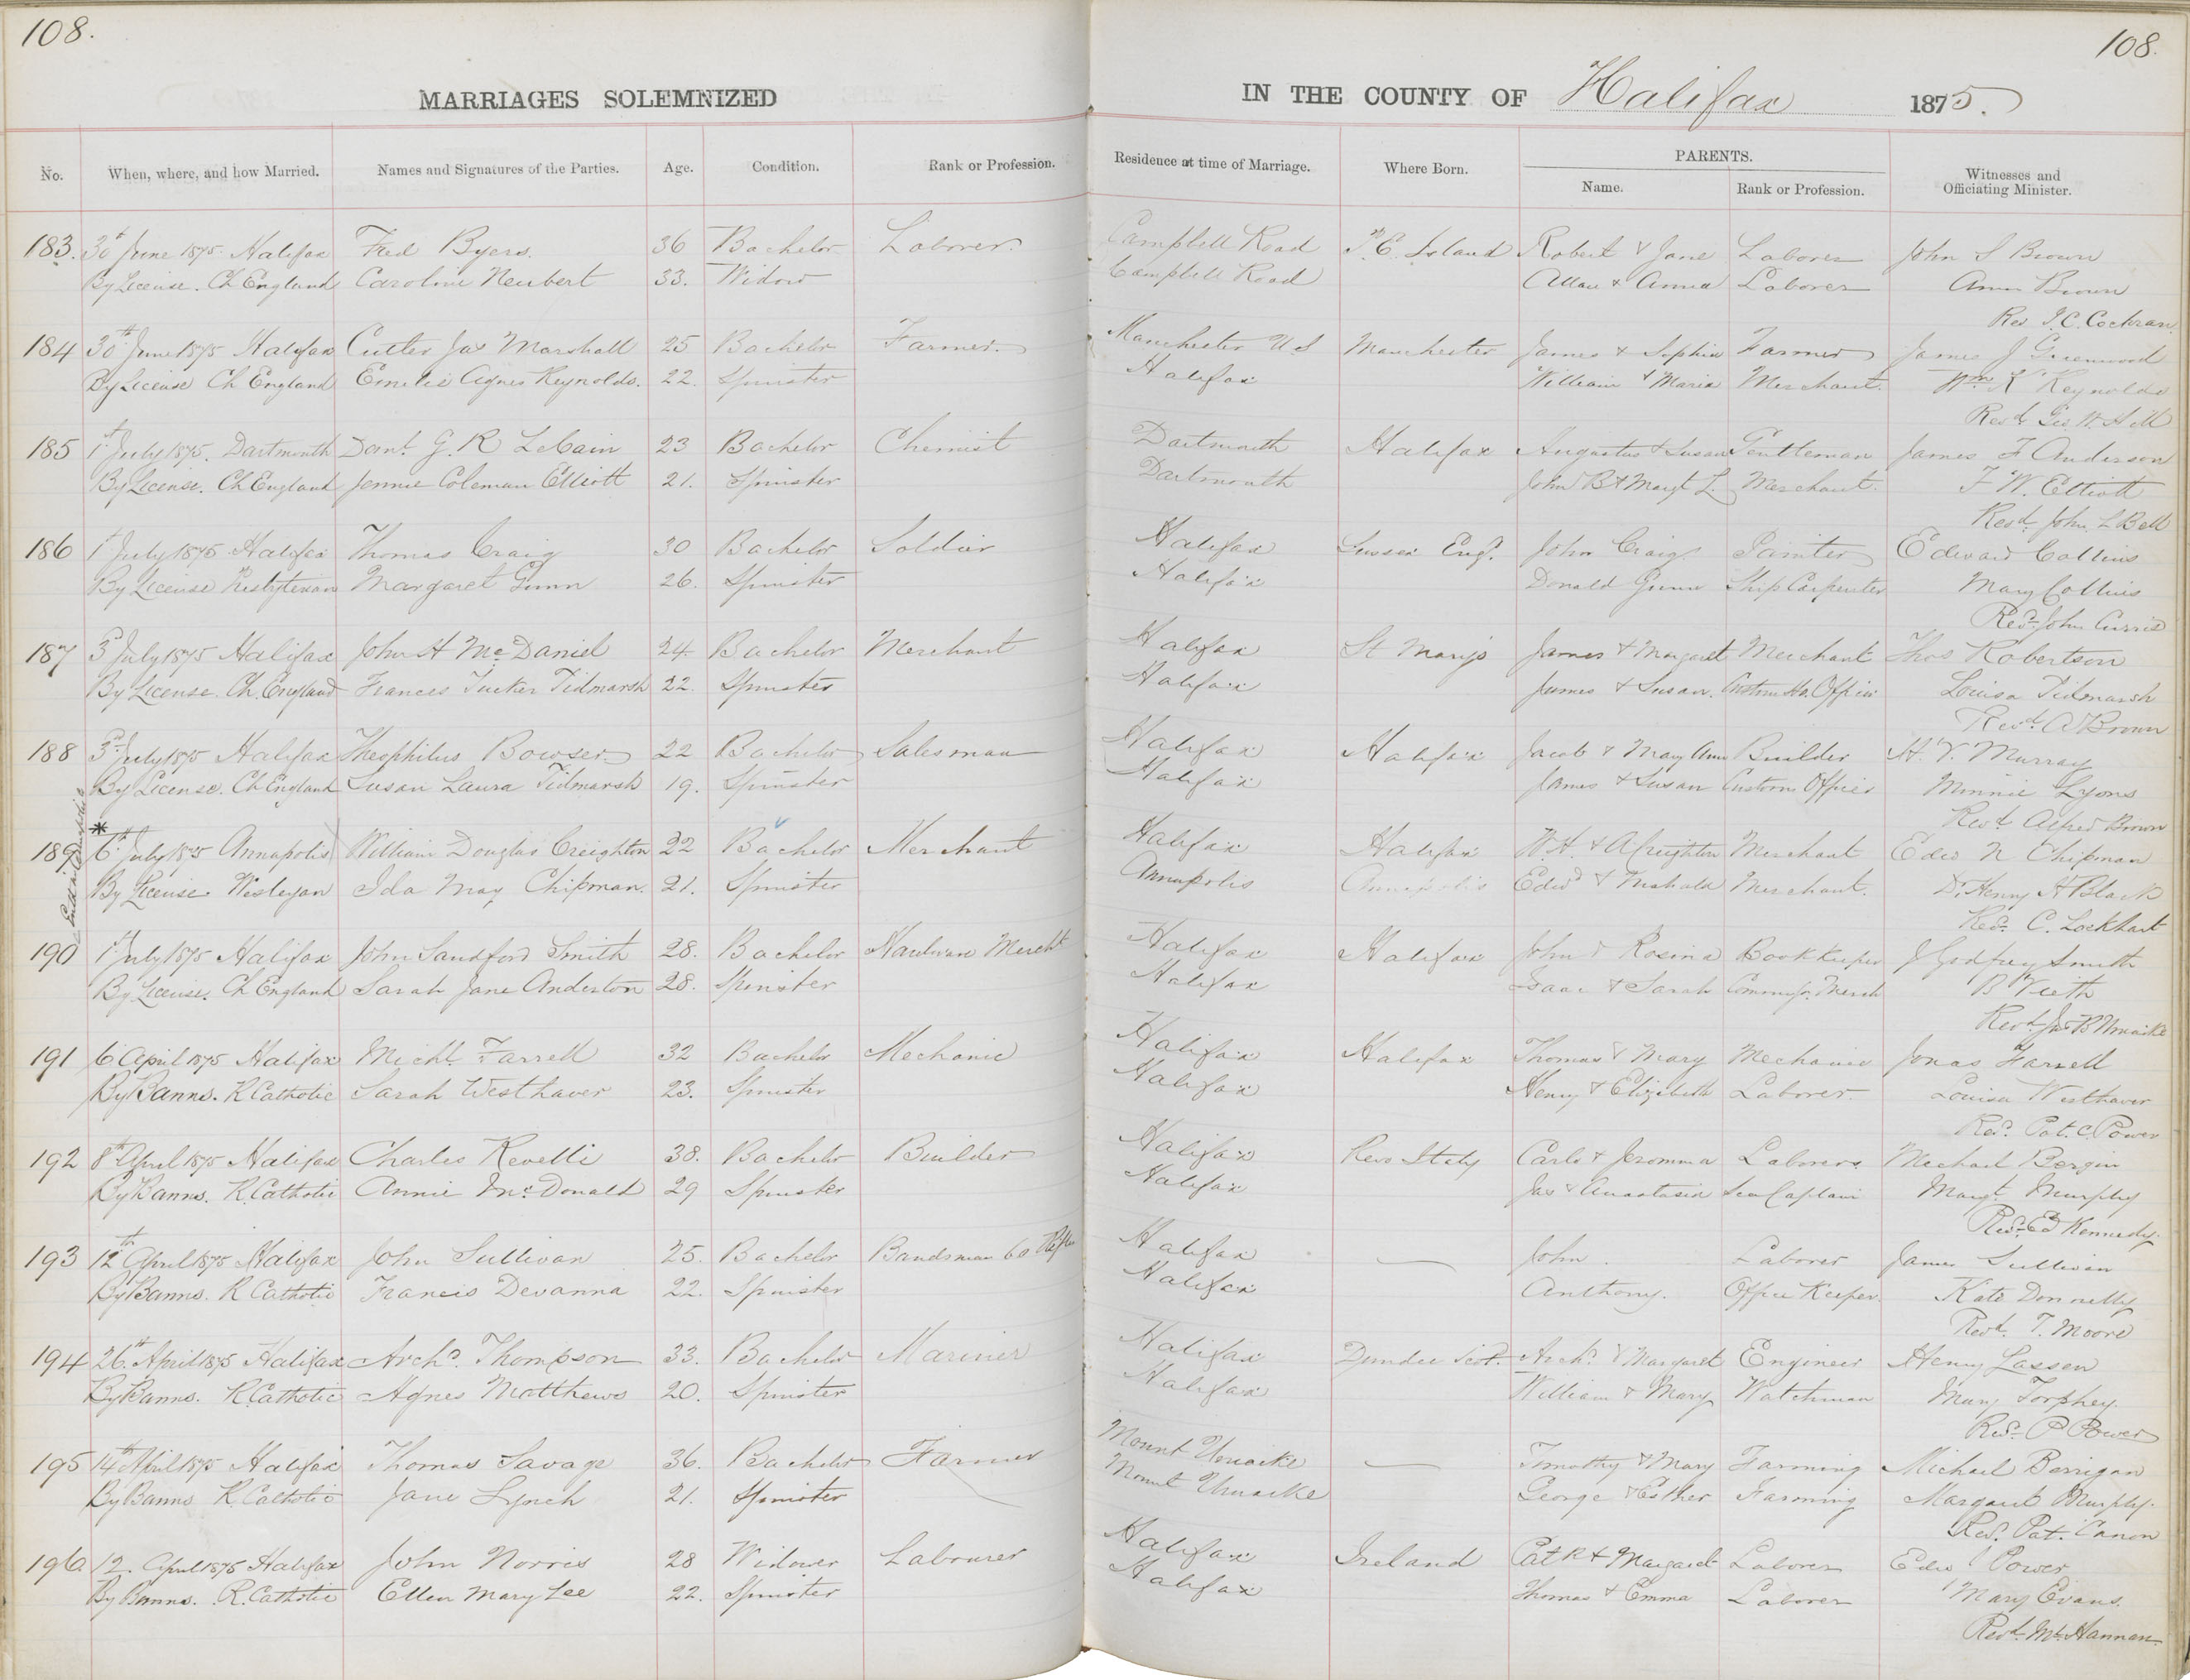 108.
108.
MARRIAGES SOLEMNIZED
IN THE COUNTY OF Halifax 1875.
No. When, where, and how Married. Names and Signatures of the Parties. Age. Condition. Rank or Profession. Residence at time of Marriage. Where Born. PARENTS. Name. Rank or Profession. Witnesses and Officiating Minister.
183. 30th June 1875 Halifax Fred Byers. 36 Bachelor Laborer. Campbell Road P.E. Island Robert & Jane Laborer John S Brown
By License. Ch England Caroline Neubert 33. Widow Campbell Road Allan & Anna Laborer Brown
Rev J.C. Cochran.
184 30th June 1875 Halifax Cutler Jas Marshall 25 Bachelor Farmer. Manchester Manchester James & Sophia Farmer James J Greenwood
By License Ch England Emelie Agnes Reynolds. 22. Spinster Halifax William & Maria Merchant. Wm K Reynolds
Revd Geo W Hill
185 1st July 1875. Dartmouth Danl. G. R LeCain 23 Bachelor Chemist Dartmouth Halifax Augustus & Susan Gentleman James F Anderson
By License. Ch England Jennie Coleman Elliott 21. Spinster Dartmouth John B & Margt L. Merchant. F W. Elliott
Revd. John L Bell
186 1st July 1875 Halifax Thomas Craig 30 Bachelor Soldier Halifax Sussex Engd. John Craig Painter Edward Collins
By License Presbyterian Margaret Gunn 26. Spinster Halifax Donald Gunn Ship Carpenter Mary Collins
Revd. John Currie
187 3rd July 1875 Halifax John H McDaniel 24 Bachelor Merchant Halifax St Marys James & Margaret Merchant Thos Robertson
By License. Ch. England Frances Tucker Tidmarsh 22. Spinster Halifax James & Susan. Custom Ho. Officer Louisa Tidmarsh
Revd. A Brown
188 3rd July 1875 Halifax Theophilus Bowser 22 Bachelor Salesman Halifax Halifax Jacob & Mary Ann Builder H. V. Murray
By License. Ch England Susan Laura Tidmarsh 19. Spinster Halifax James & Susan Customs Officer Minnie Lyons
Revd. Alfred Brown
189 * 6th July 1875 Annapolis William Douglas Creighton 22 Bachelor Merchant Halifax Halifax W.H. & A Creighton Merchant Edw N Chipman
By License Wesleyan Ida May Chipman. 21. Spinster Annapolis Annapolis Edwd & Mahala Merchant. Dr. Henry H Black
Revd. C. Lockhart
190 1st July 1875 Halifax John Sandford Smith 28. Bachelor Hardware Mercht Halifax Halifax John & Rosina Book Keeper J Godfrey Smith
By License. Ch England Sarah Jane Anderton 28. Spinster Halifax Isaac & Sarah Commisn. Merch B Vieth
Revd. Jas B Uniacke
191 6 April 1875 Halifax Michl. Farrell 32 Bachelor Mechanic Halifax Halifax Thomas & Mary Mechanic Jonas Farrell
By Banns. R Catholic Sarah Westhaver 23. Spinster Halifax Henry & Elizabeth Laborer. Louisa Westhaver
Revd. Pat. C. Power
192 8th April 1875 Halifax Charles Revelli 38. Bachelor Builder Halifax Italy Carlo & Laborer. Michael Bergin
By Banns. R. Catholic Annie McDonald 29 Spinster Halifax Jas & Anastasia Sea Captain Margt. Murphy
Revd. Ed Kennedy.
193 12th April 1875 Halifax John Sullivan 25. Bachelor Bandsman 60 Rifles Halifax — John. Laborer James Sullivan
By Banns. R Catholic Francis Devanna 22. Spinster Halifax Anthony. Office Keeper. Kate Donnelly
Revd. T. Moore
194 26th. April 1875 Halifax Archd. Thompson 33. Bachelor Mariner Halifax Dundee Scot. Archd & Margaret Engineer Henry Lassen
By Banns. R. Catholic Agnes Matthews 20. Spinster Halifax William & Mary Watchman Mary Torphey.
Revd. P Power
195 14th April 1875 Halifax Thomas Savage 36. Bachelor Farmer Mount Uniacke — Timothy & Mary Farming Michael Berrigan
By Banns R. Catholic Jane Lynch 21. Spinster Mount Uniacke George & Esther Farming Margaret Murphy.
Revd. Pat. Canon
196. 12. April 1875 Halifax John Norris 28 Widower Labourer Halifax Ireland Patk & Margaret Laborer Edw Power
By Banns. R. Catholic Ellen Mary Lee 22. Spinster Halifax Thomas & Emma Laborer Mary Evans.
Revd. Ml. Hannan.